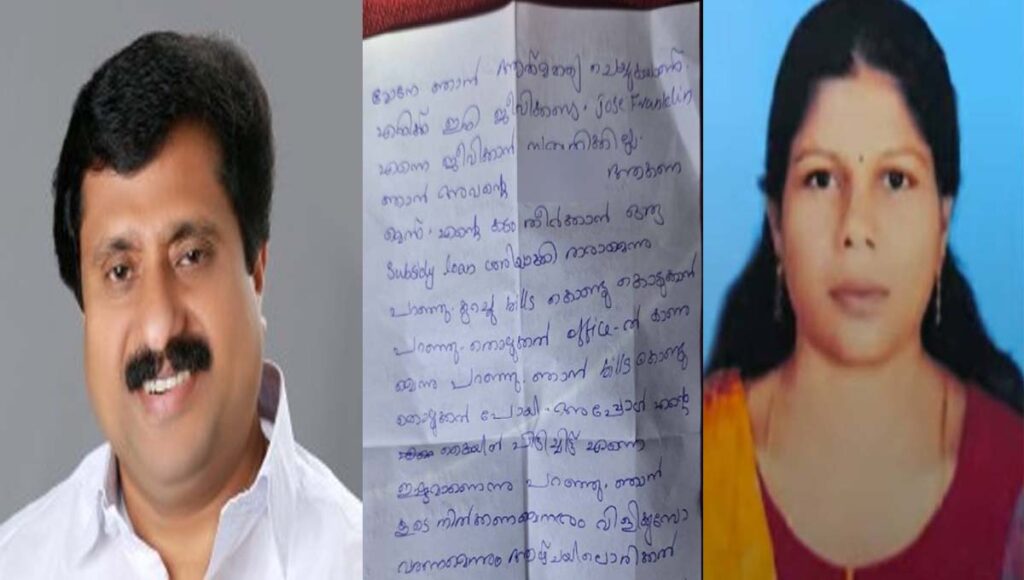 മോനേ ഞാൻ ആത്മഹത്യ ചെയ്യുകയാണ്.
എനിക്ക് ഇനി ജീവിക്കണ്ട. Jose Franklin
എന്നെ ജീവിക്കാൻ സമ്മതിക്കില്ല.
ഞാൻ അവന്റെ
എന്റെ കടം തീർക്കാൻ ഒരു
Subsidy loan ശരിയാക്കി തരാമെന്നു
പറഞ്ഞു. കുറച്ച് bills കൊണ്ടു കൊടുക്കാൻ
പറഞ്ഞു. office-ൽ കാണ
മെന്നു പറഞ്ഞു. ഞാൻ bills കൊണ്ടു
കൊടുക്കാൻ പോയി. അപ്പോൾ എന്റെ
കൈയിൽ പിടിച്ചിട്ട് എന്നെ
ഇഷ്ടമാണെന്നു പറഞ്ഞു. ഞാൻ
കൂടെ നിൽക്കണമെന്നും വിളിക്കുമ്പോ
വരണമെന്നും ആഴ്ചയിലൊരിക്കൽ